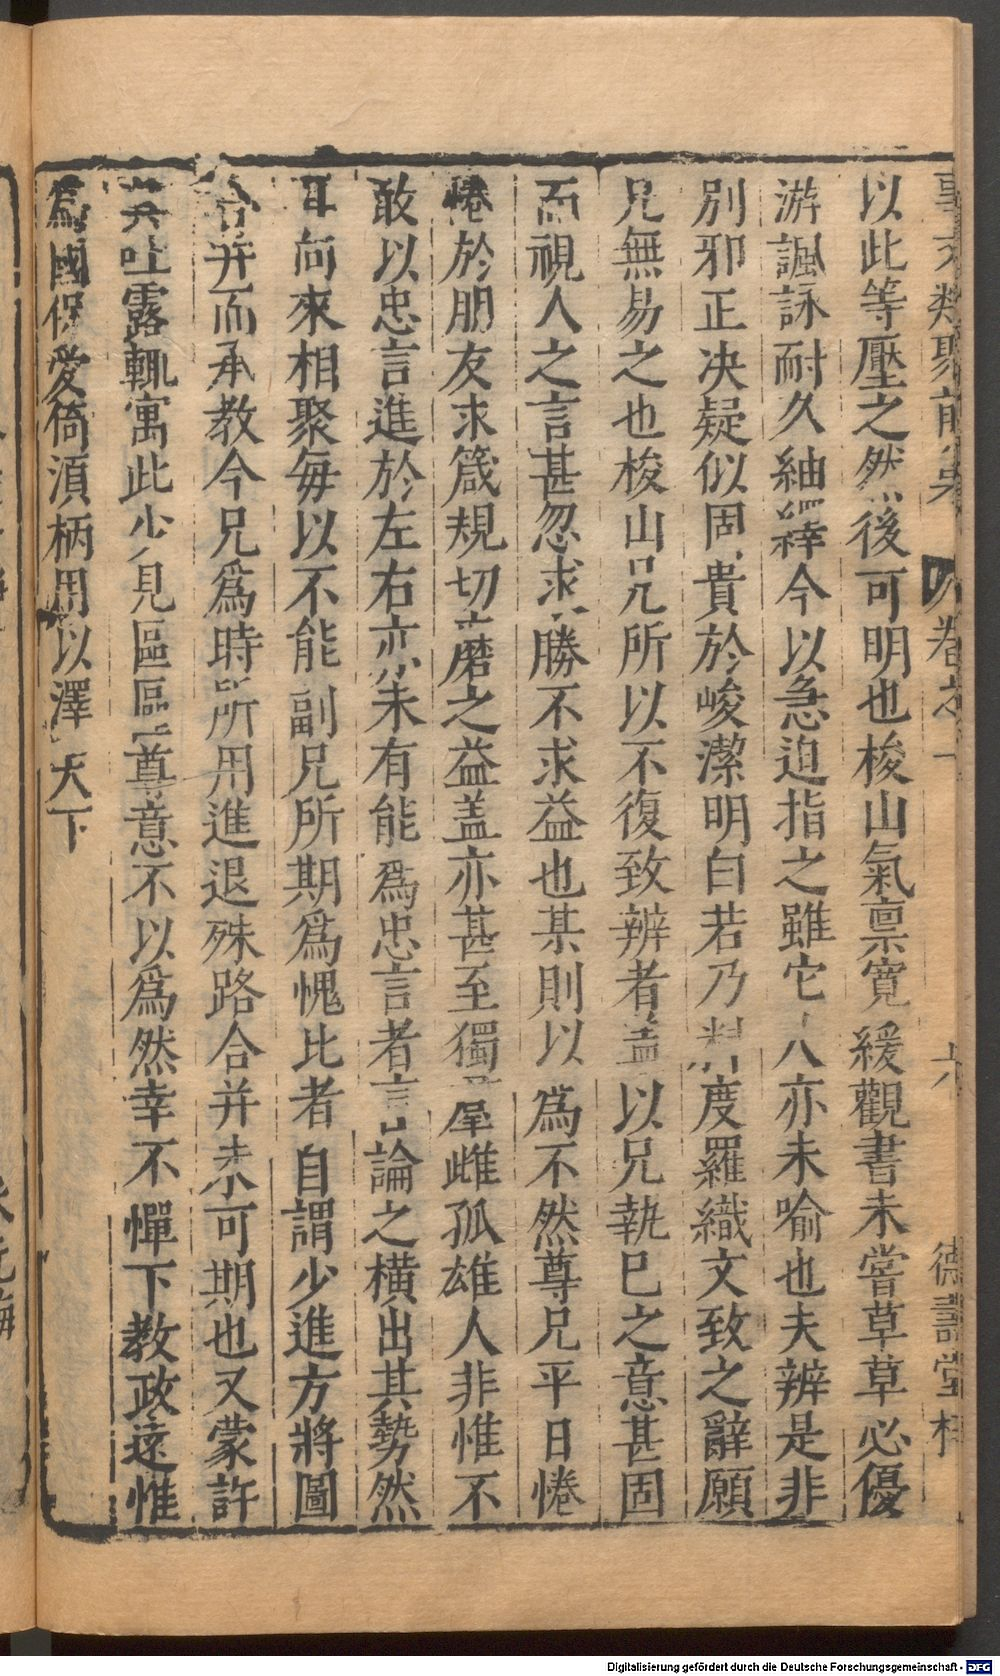 類聚前集 卷之十 六 德壽堂梓
以此等壓之然後可明也梭山氣禀寛緩觀書未嘗草草必優
游諷詠耐久紬繹今以急迫指之雖它人亦未喻也夫辨是非
別邪正决疑似固貴於峻潔明白若乃料度羅織文致之辭願
兄無易之也梭山兄所以不復致辨者盖以兄執已之意甚固
而視人之言甚忽求勝不求益也某則以為不然尊兄平日惓
惓於朋友求箴規切磨之益盖亦甚至獨羣雌孤雄人非惟不
敢以忠言進於左右亦未有能為忠言者言論之橫出其勢然
耳向來相聚每以不能副兄所期為愧比者自謂少進方將圖
合并而承教今兄為時所用進退殊路合并未可期也又蒙許
其吐露輒寓此少見區區尊意不以為然幸不憚下教政遠惟
為國保愛倚湏柄用以澤天下
Digitalisierung gefördert durch die Deutsche Forschungsgemeinschaft - DFG